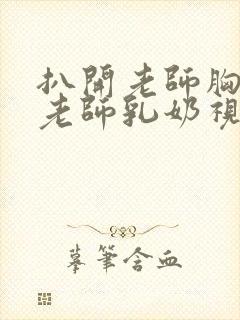 扒開老師胸
老師乳奶視
摹筆含血